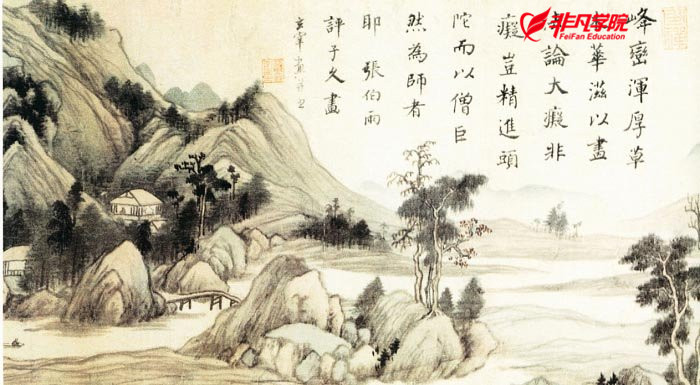 非凡学院
FeiFan Education
峰巒渾厚草
華滋以畫
論大癡非
癡豈精進頭
陀而以僧巨
然為師者
耶張伯雨
評子久畫
玄宰